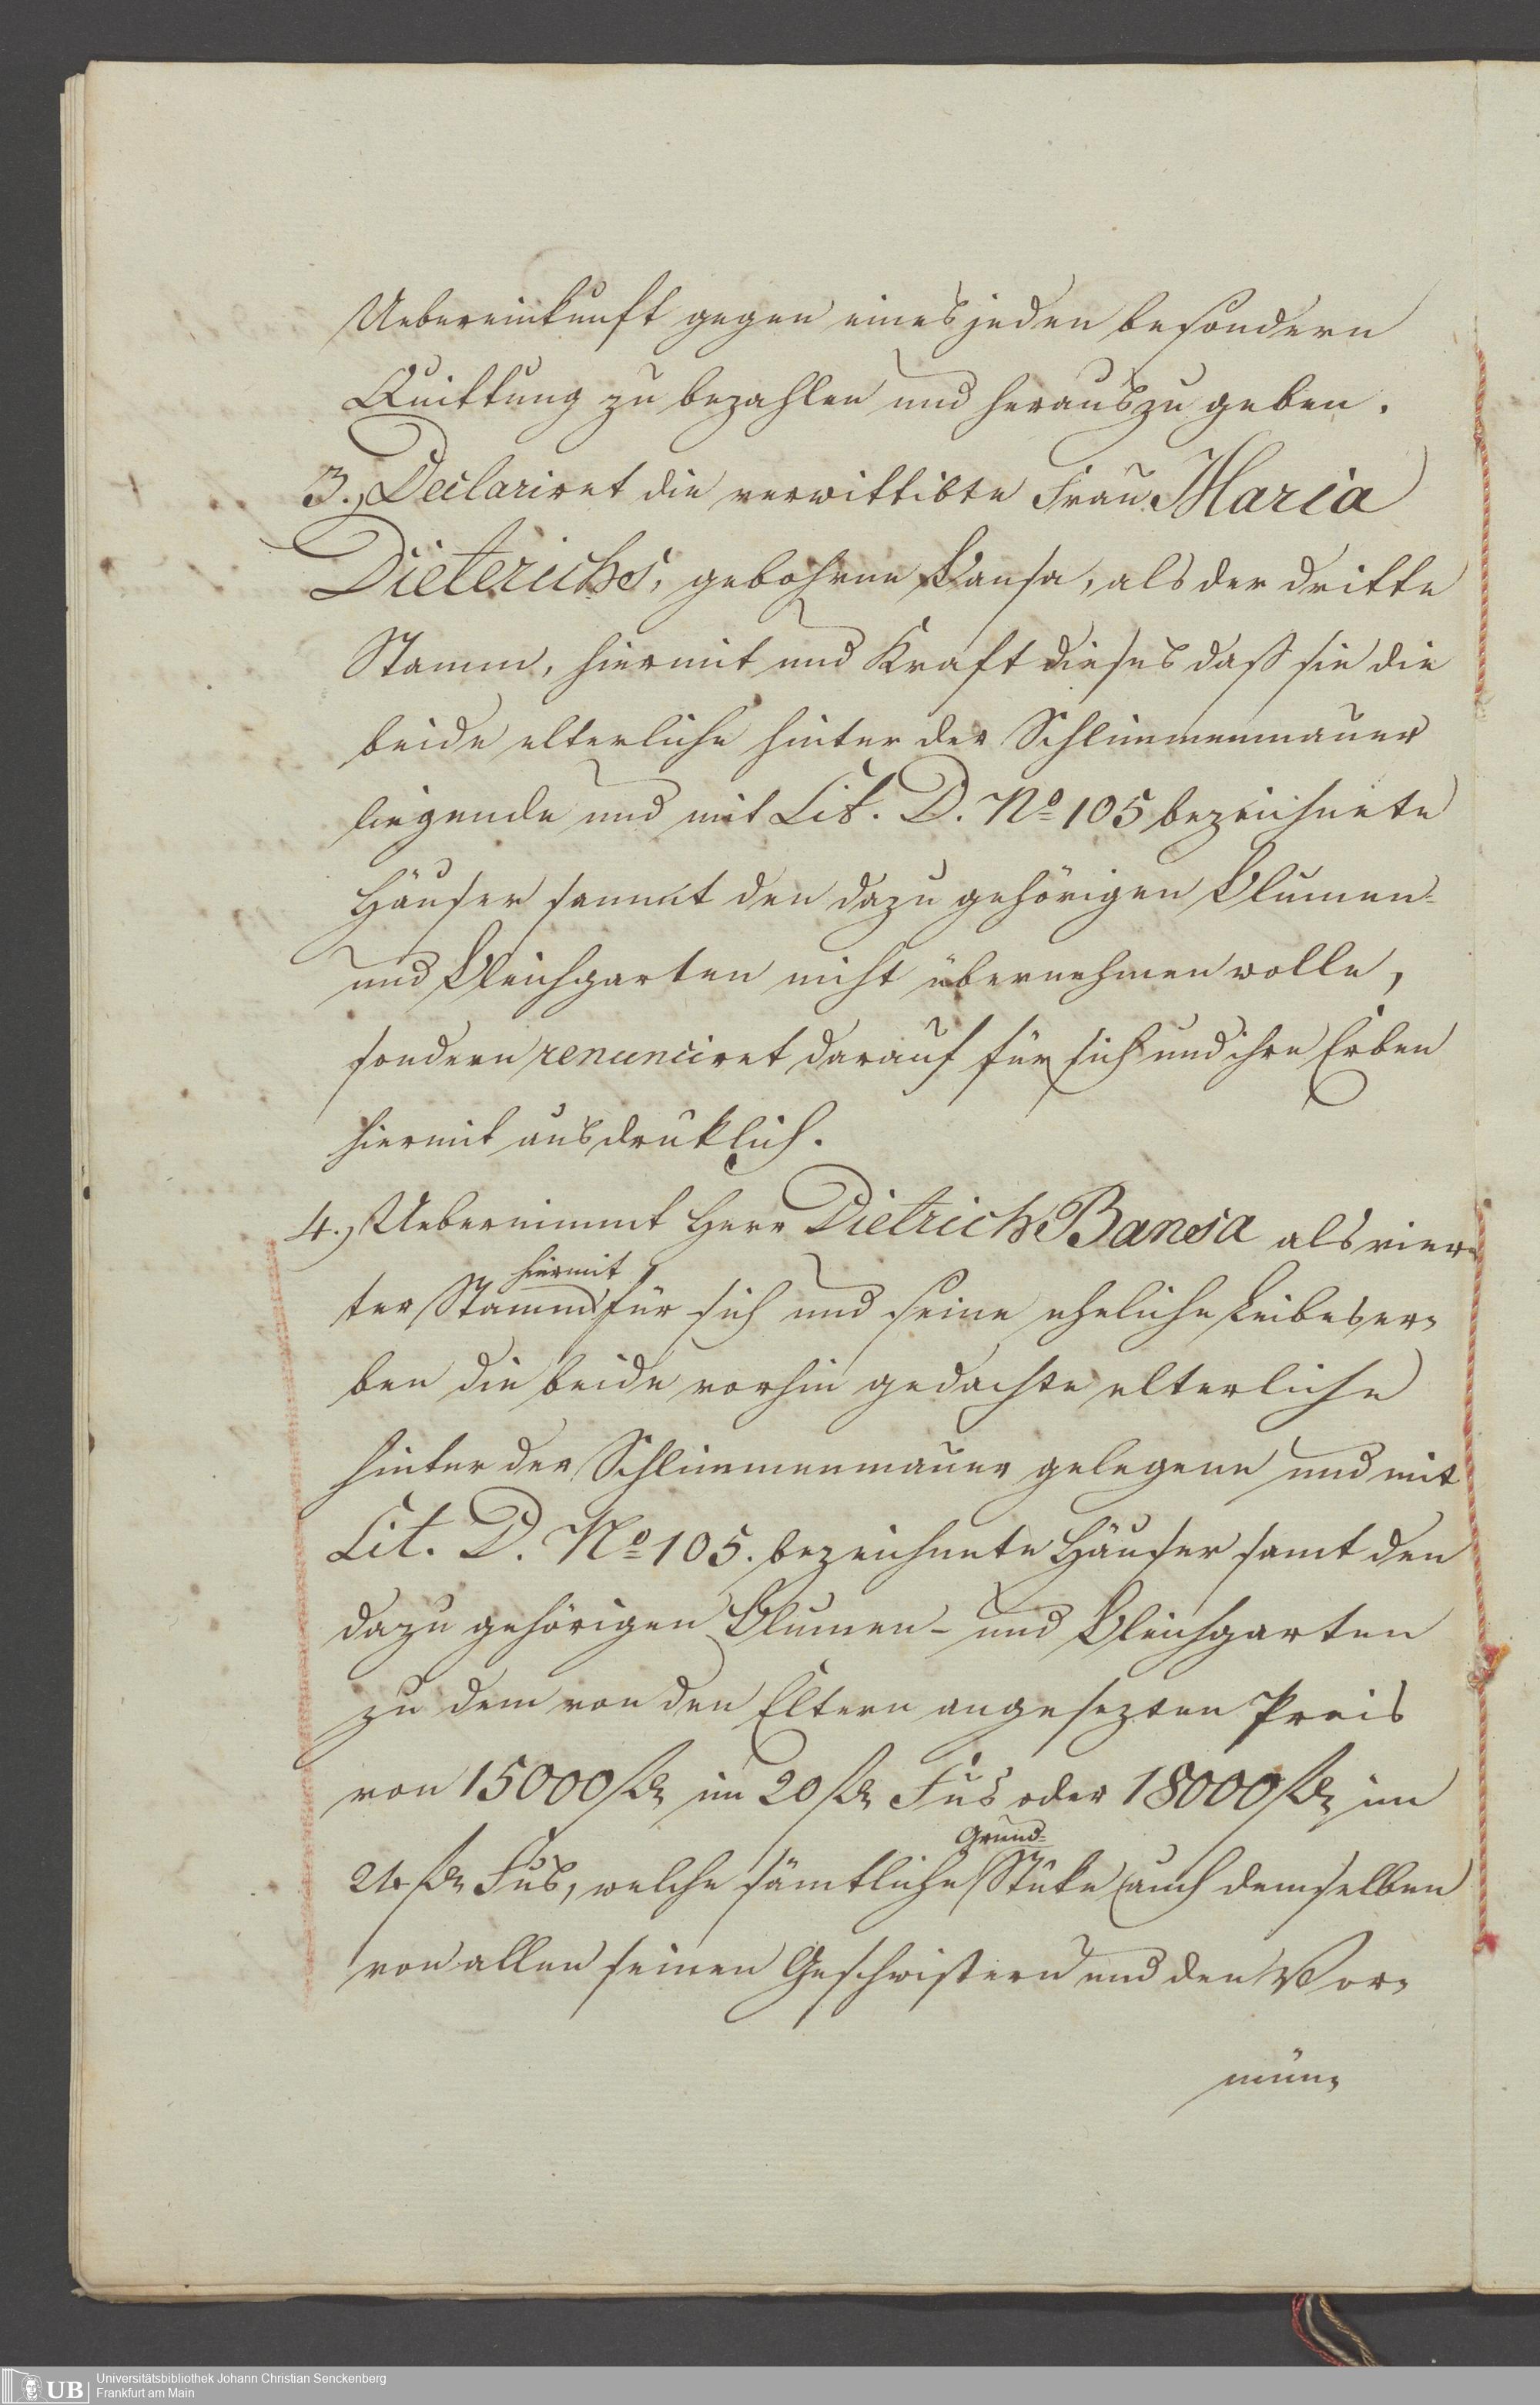 Uebereinkunft gegen eines jeden besondern
Quittung zu bezahlen und herauszugeben.
3.) Declariret die verwittibte Frau Maria
Dieterichs, gebohrne Bansa, als der dritte
Stamm, hiermit und Kraft dieses daß sie die
beide elterliche hinter der Schlimmenmauer
liegende und mit Lit. D. No 105 bezeichnete
Häuser sammt den dazu gehörigen Blumen-
und Bleichgarten nicht übernehmen wolle,
sondern renunciret darauf für sich und ihre Erben
hiermit ausdruklich.
4.) Uebernimmt Herr Dietrich Bansa als vier-
hiermit
ter Stamm für sich und seine eheliche Leibeser-
ben die beide vorhin gedachte elterliche
hinter der Schlimmenmauer gelegene und mit
Lit. D. No 105. bezeichnete Häuser samt den
dazu gehörigen Blumen- und Bleichgarten
zu dem von den Eltern angesezten Preis
von 15000 fl im 20 fl Fus oder 18000 fl im
Grund-
24 fl Fus, welche sämtliche Stüke auch demselben
von allen seinen Geschwistern und den Vor-
mün-
Universitätsbibliothek Johann Christian Senckenberg
Frankfurt am Main
UB